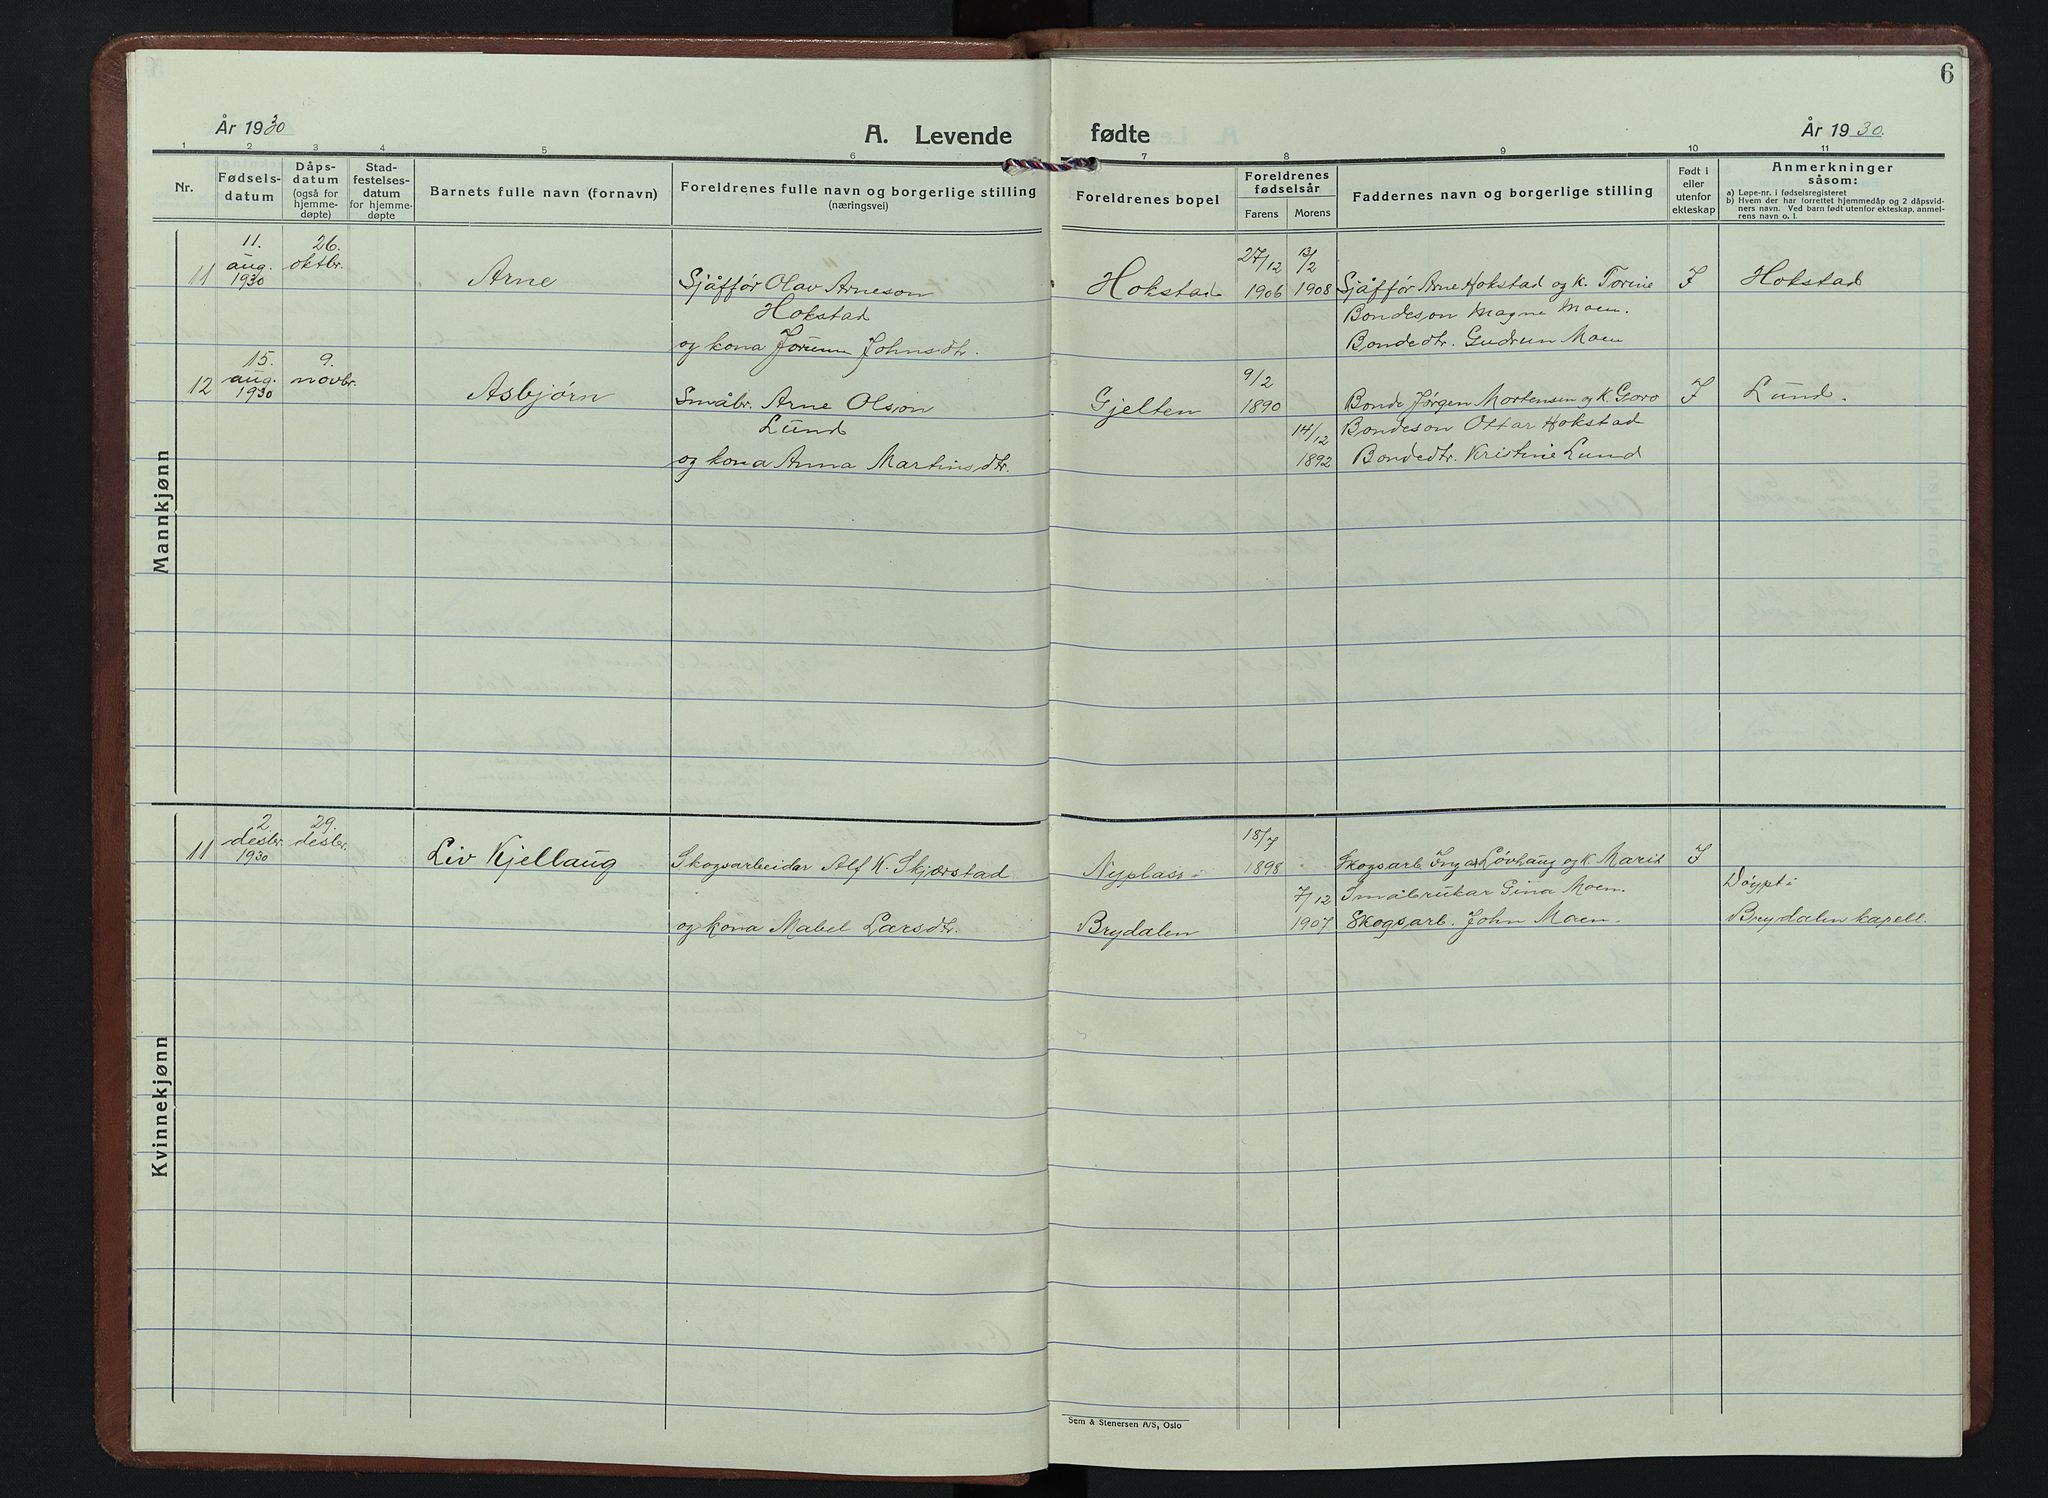 6
År 1930
A. Levende fødte
År 1930.
1 2 3 4 5 6 7 8 9 10 11
Nr.
Fødselsdatum
Dåpsdatum (også for hjemmedøpte)
Stadfestelsesdatum for hjemmedøpte
Barnets fulle navn (fornavn)
Foreldrenes fulle navn og borgerlige stilling
(næringsvei)
Foreldrenes bopel
Foreldrenes fødselsår
Farens Morens
Faddernes navn og borgerlige stilling
Født i eller utenfor ekteskap
Anmerkninger
såsom:
a) Løpe-nr. i fødselsregisteret
b) Hvem der har forrettet hjemmedåp og 2 dåpsvidners navn. Ved barn født utenfor ekteskap, anmelrens navn o. l.
Mannkjønn
11. 26. 27/12 13/2
11 aug. oktbr. Arne Sjåffør Olav Arneson Hokstad 1906 1908 Sjåffør Arne Hokstad og K. Torine I Hokstad
1930 Hokstad Bondeson Magne Moen.
og kona Jorunn Johnsdtr. Bondedtr. Gudrun Moen
15. 9. 9/2
12 aug. novbr. Asbjørn Småbr. Arne Olson Gjelten 1890 Bonde Jørgen Mortensen og K. Goro I Lund.
1930 Lund 14/12 Bondeson Ottar Hokstad
og kona Anna Martinsdtr. 1892 Bondedtr. Kristine Lund
Kvinnekjønn
2. 29. 18/7
11 desbr. desbr. Liv Kjellaug Skogsarbeidar Alf K. Skjærstad Nyplass i 1898 Skogsarb Løvhaug og K. Marit I
1930 7/12 Småbrukar Gina Moen. Døypt i
og kona Mabel Larsdtr. Brydalen 1907 Skogsarb. John Moen. Brydalen kapell.
Sem & Stenersen A/S, Oslo